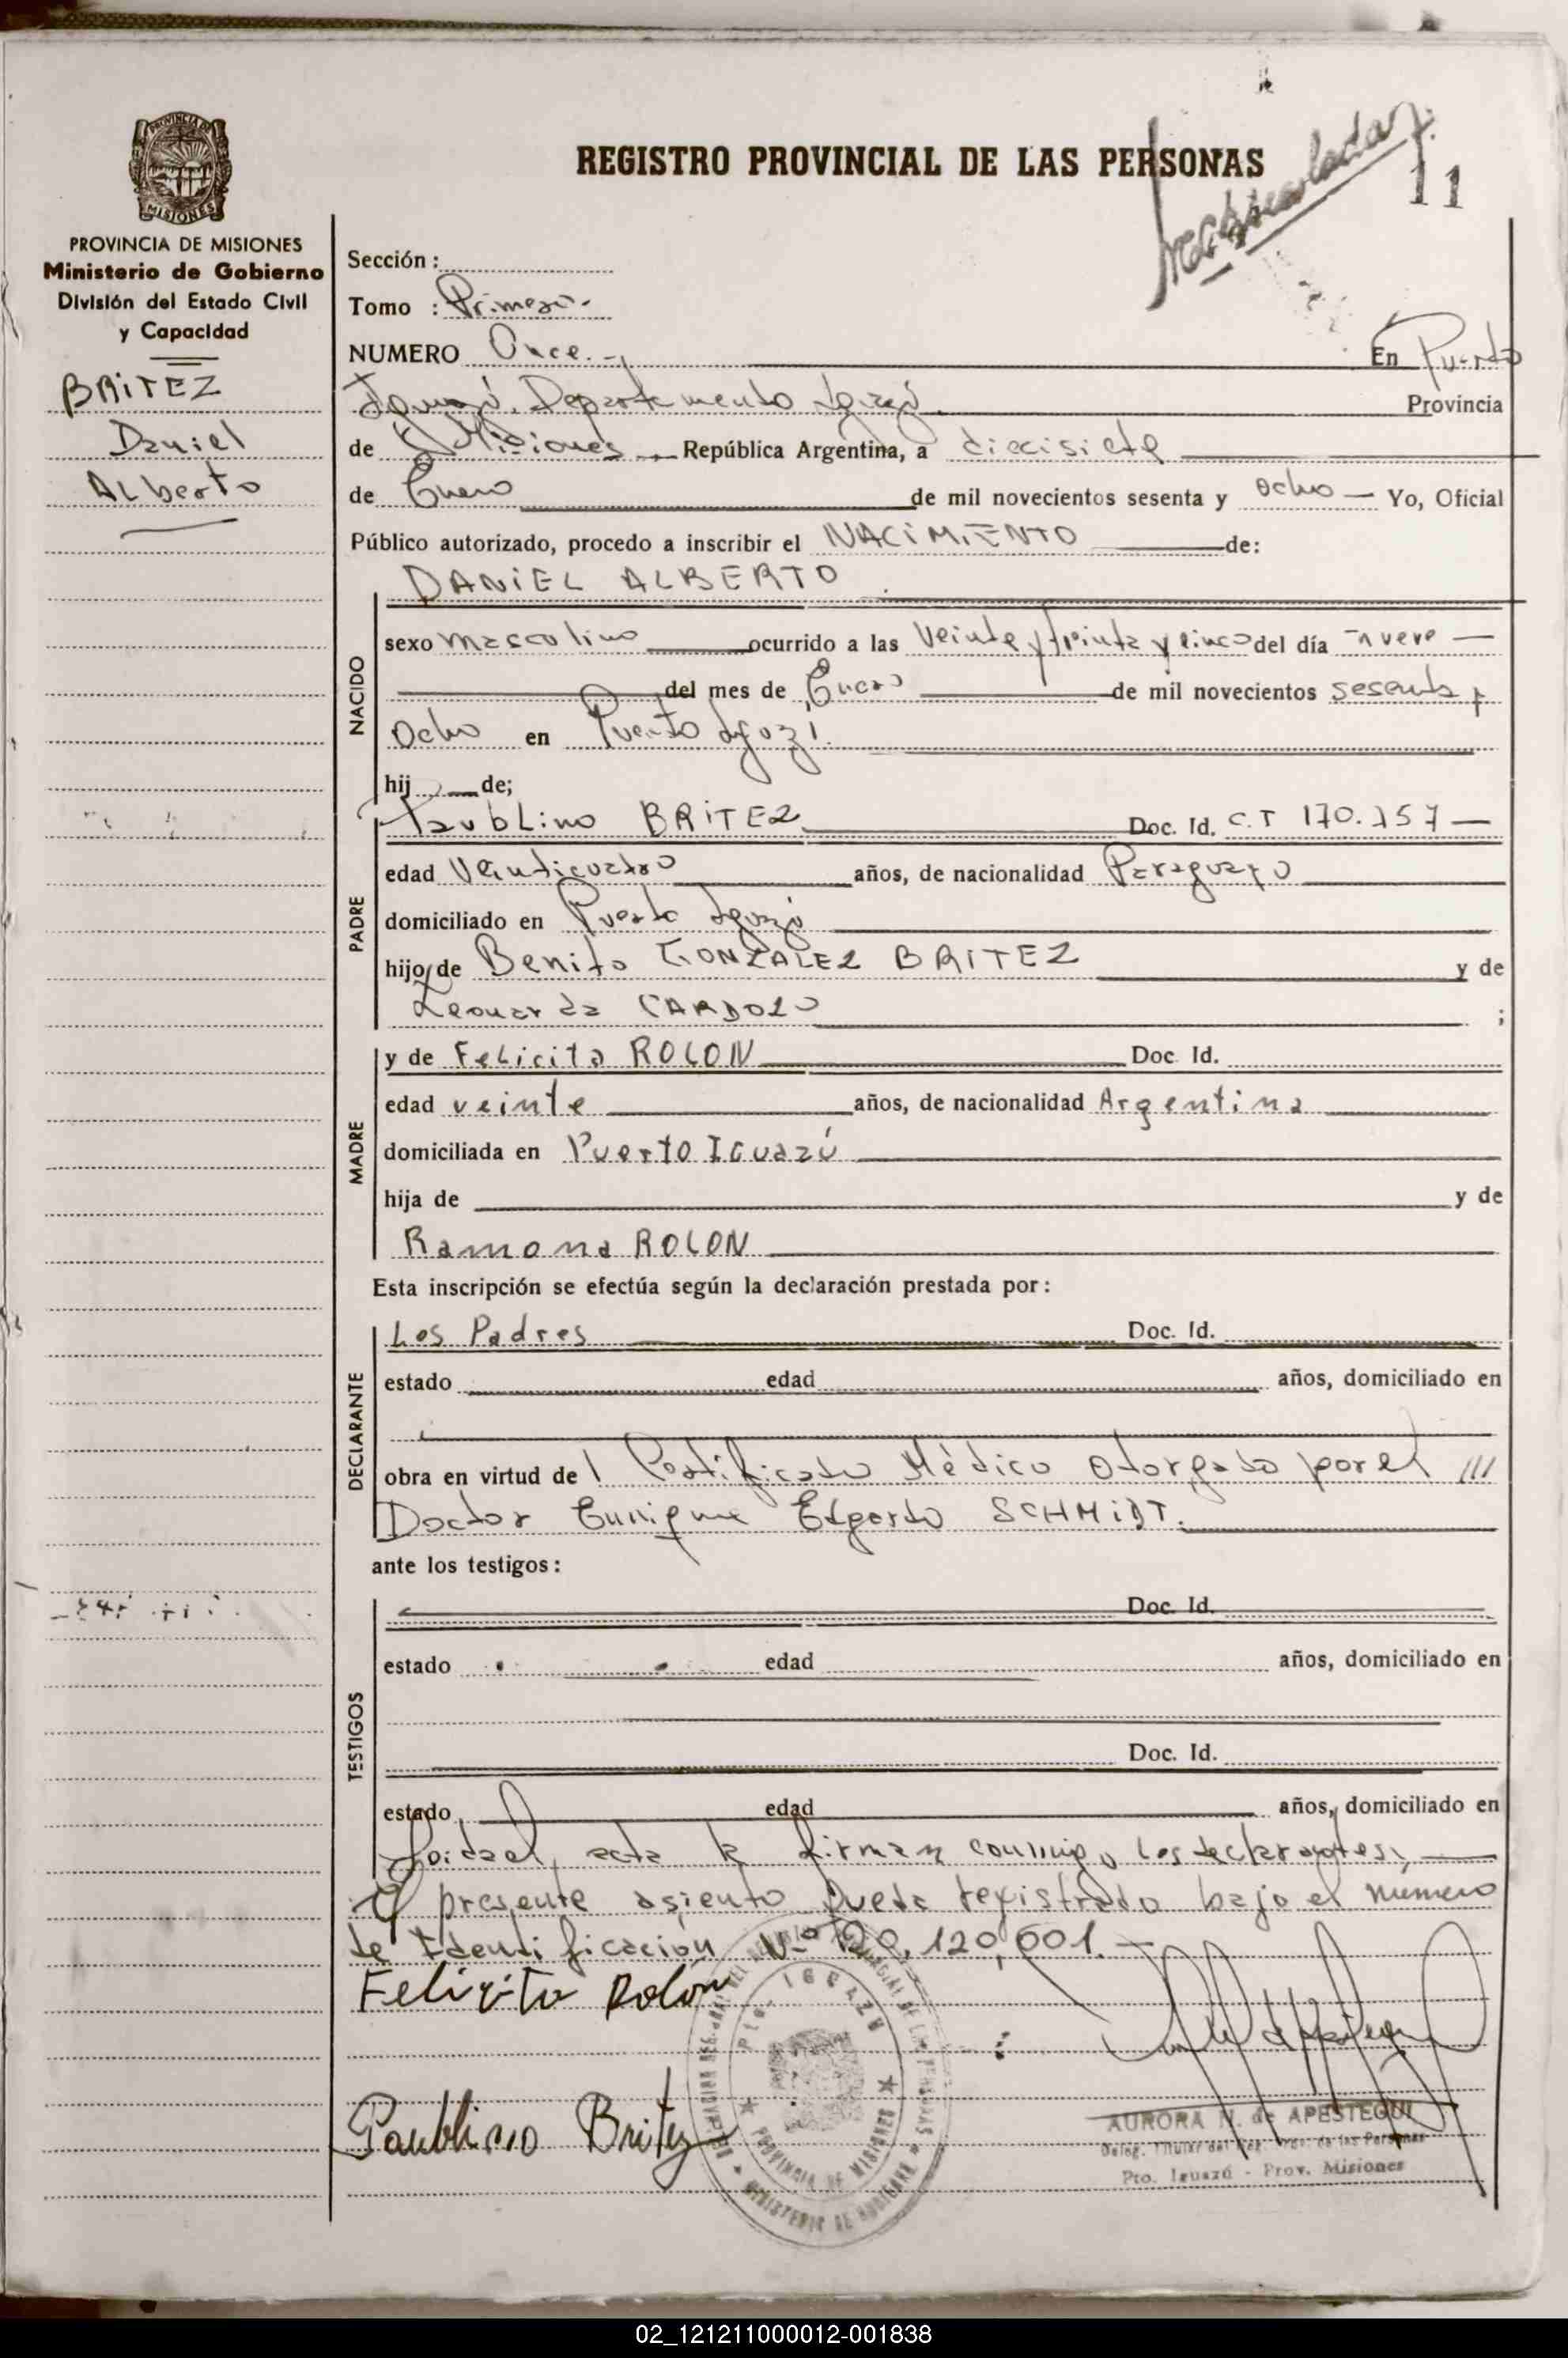 REGISTRO PROVINCIAL DE LAS PERSONAS
11
PROVINCIA DE MISIONES
Ministerio de Gobierno
División del Estado Civil
y Capacidad
BRITEZ
Daniel
Alberto
Sección :
Tomo : Primero.-
NUMERO Once.- En Puerto
Iguazú, Departamento Iguazú Provincia
de Misiones República Argentina, a diecisiete
de Enero de mil novecientos sesenta y ocho Yo, Oficial
Público autorizado, procedo a inscribir el NACIMIENTO de:
DANIEL ALBERTO
NACIDO
sexo masculino ocurrido a las veinte y treinta y cinco del día nueve
del mes de Enero de mil novecientos sesenta y
ocho en Puerto Iguazú.
hijo de;
PADRE
BRITEZ Doc. Id. C.T 170.157
edad Veinticuatro años, de nacionalidad Paraguayo
domiciliado en Puerto Iguazú
hijo de Benito GONZALEZ BRITEZ y de
Leonarda CARDOZO ;
MADRE
y de Felicita ROLON Doc. Id.
edad veinte años, de nacionalidad Argentina
domiciliada en Puerto IGuazú
hija de y de
Ramona ROLON
Esta inscripción se efectúa según la declaración prestada por :
DECLARANTE
Los Padres Doc. Id.
estado edad años, domiciliado en
obra en virtud del Certificado Médico otorgado por el ///
Doctor Enrique Edgardo SCHMIDT.
ante los testigos :
TESTIGOS
Doc. Id.
estado edad años, domiciliado en
Doc. Id.
estado edad años, domiciliado en
Leida el acta la firman conmigo los declarantes,
El presente asiento queda registrado bajo el número
de Identificación Nº 20,120,001.-
Felicita Rolón
Paublino Britez
Pto. IGUAZU
PROVINCIA DE MISIONES
MINISTERIO DE GOBIERNO
AURORA M. de APESTEGUI
Pto. Iguazú - Prov. Misiones
02_121211000012-001838